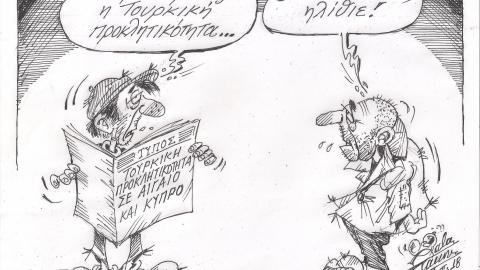 η Τουρκική
προκλητικότητα...
ηλίθιε!
ΤΥΠΟΣ
ΤΟΥΡΚΙΚΗ
ΠΡΟΚΛΗΤΙΚΟΤΗΤΑ
ΣΕ ΑΙΓΑΙΟ
ΚΑΙ ΚΥΠΡΟ